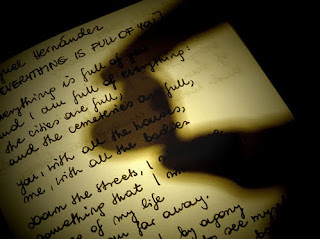 guel Hernández
EVERYTHING IS FULL OF YOU]
erything is full of you
and I am full of everything:
the cities are full,
and the cemeteries are full,
you, with all the houses,
me, with all the bodies
Down the streets, I
something that I
of my life
far away.
by agony
to see myself